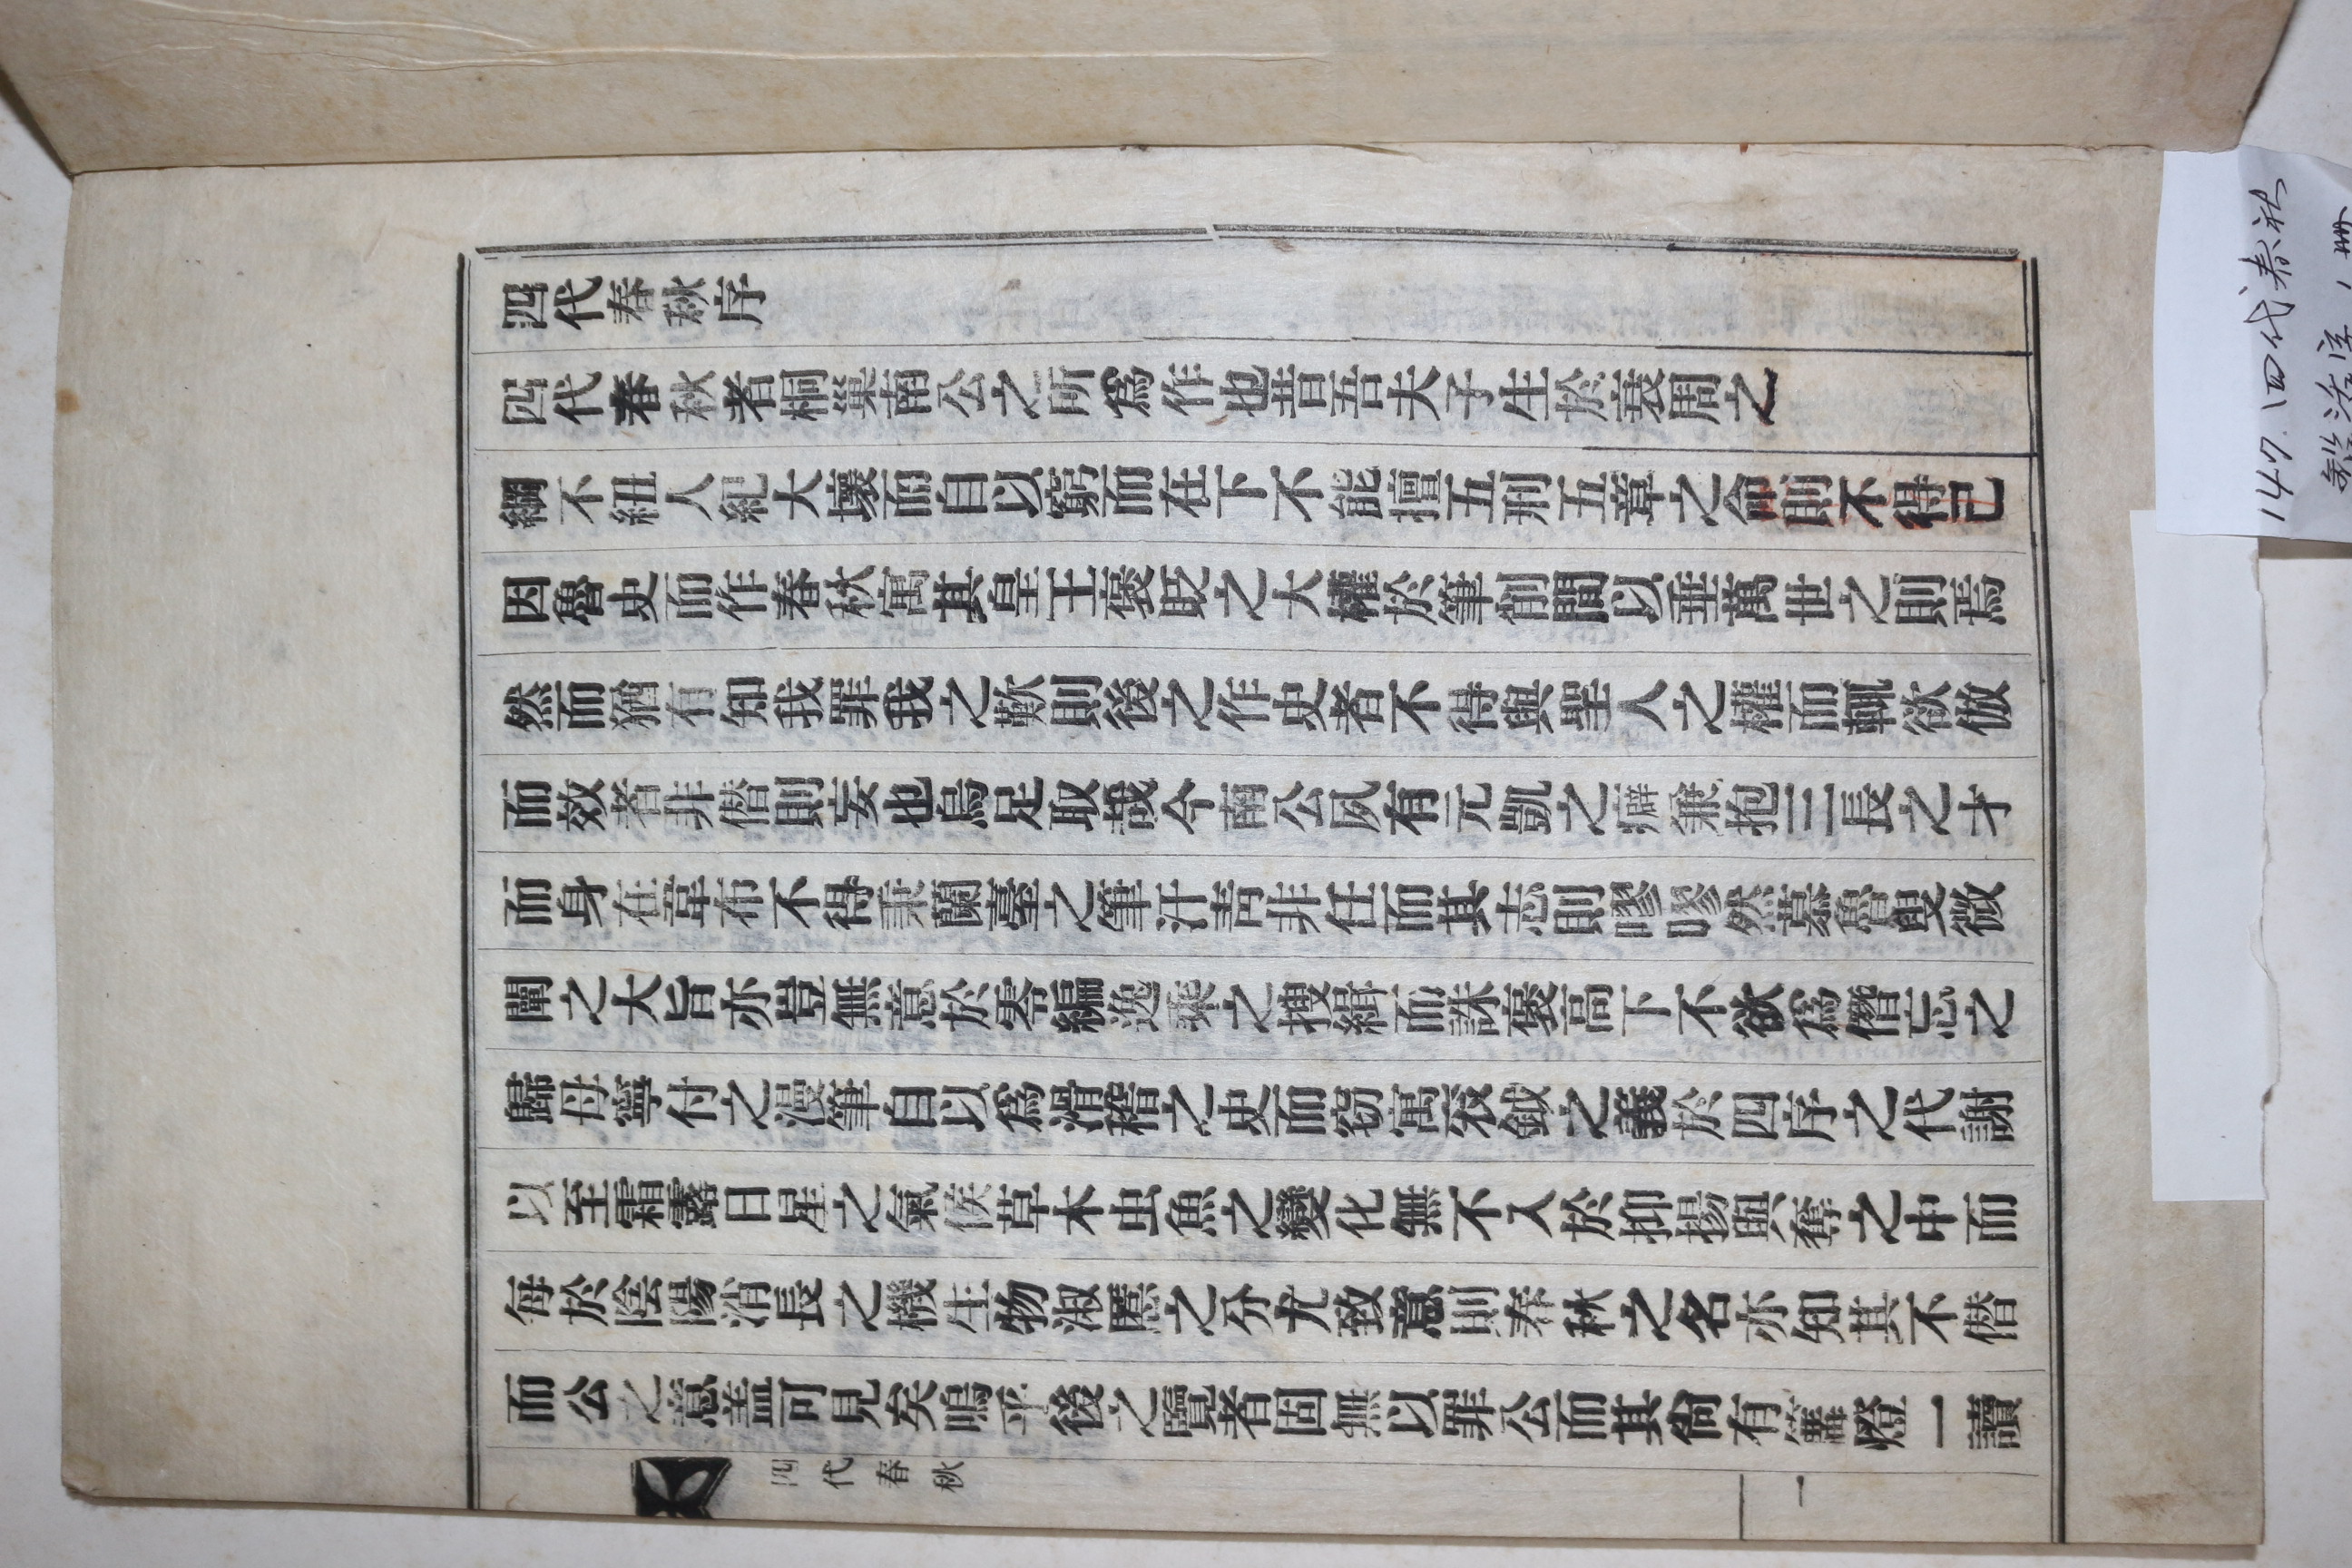 四代春秋序
四代春秋者桐巢南公之所爲作也昔吾夫子生於衰周之
綱不紐人紀大壞而自以窮而在下不能擅五刑五章之命則不得己
因魯史而作春秋寓其皇王褒貶之大權於筆削間以垂萬世之則焉
然而猶有知我罪我之歎則後之作史者不得與聖人之權而輒欲倣
而效者非僭則妄也烏足取哉今南公夙有元凱之癖兼抱三長之才
而身在韋布不得秉蘭臺之筆汗靑非任而其志則嘐嘐然慕魯叟微
闡之大旨亦豈無意於零編逸乘之搜緝而誅褒高下不欲爲僭忘之
歸毋寧付之漫筆自以爲滑稽之史而窃寓衮鉞之義於四序之代謝
以至霜露日星之氣候草木虫魚之變化無不入於抑揚與奪之中而
每於陰陽消長之機生物淑慝之分尤致意則春秋之名亦知其不僭
而公之意盖可見矣嗚乎後之覽者固無以罪公而其尙有篝燈一讀
四代春秋
一
147. 四代春秋
活字 1册